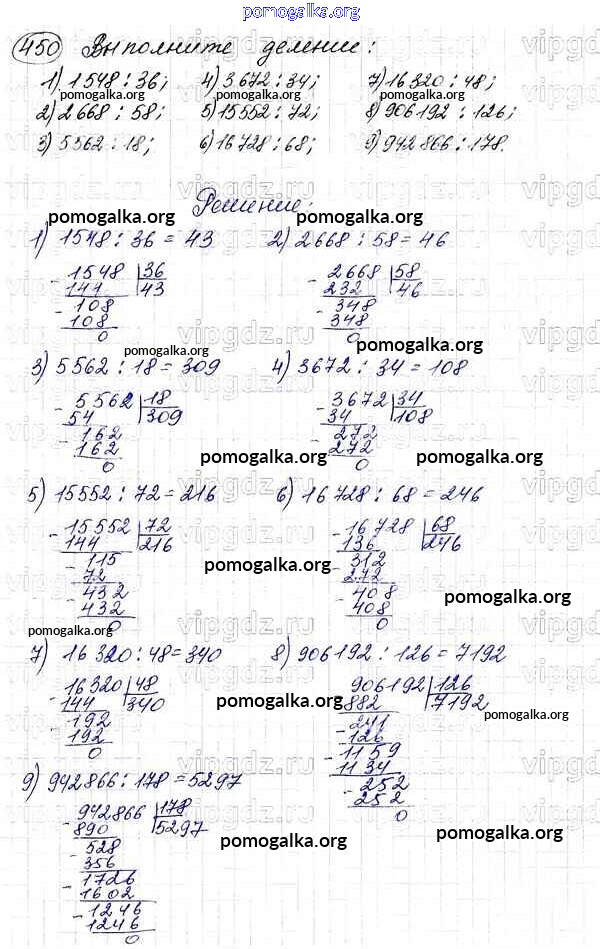 pomogalka.org
450 Выполните деление:
1) 1548 : 36; 4) 3672 : 34; 7) 16320 : 48;
pomogalka.org pomogalka.org pomogalka.org
2) 2668 : 58; 5) 15552 : 72; 8) 906192 : 126;
3) 5562 : 18; 6) 16728 : 68; 9) 942866 : 178.
Решение:
pomogalka.org pomogalka.org
1) 1548 : 36 = 43 2) 2668 : 58 = 46
- 1548 | 36 - 2668 | 58
144 43 232 46
- 108 - 348
108 348
0 0
pomogalka.org pomogalka.org
3) 5562 : 18 = 309 4) 3672 : 34 = 108
- 5562 | 18 - 3672 | 34
54 309 34 108
- 162 - 272
162 272
0 0
pomogalka.org pomogalka.org
5) 15552 : 72 = 216 6) 16728 : 68 = 246
- 15552 | 72 - 16728 | 68
144 216 136 246
- 115 - 312
72 272
- 432 - 408
432 408
0 0
pomogalka.org pomogalka.org
pomogalka.org
7) 16320 : 48 = 340 8) 906192 : 126 = 7192
- 16320 | 48 - 906192 | 126
144 340 882 7192
- 192 - 241
192 126
0 - 1159
1134
- 252
252
0
pomogalka.org pomogalka.org
9) 942866 : 178 = 5297
- 942866 | 178
890 5297
- 528
356
- 1726
1602
- 1246
1246
0
pomogalka.org pomogalka.org
pomogalka.org
vipgdz.ru